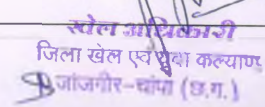 खेल अधिकारी
जिला खेल एवं युवा कल्याण
जांजगीर-चांपा (छ.ग.)